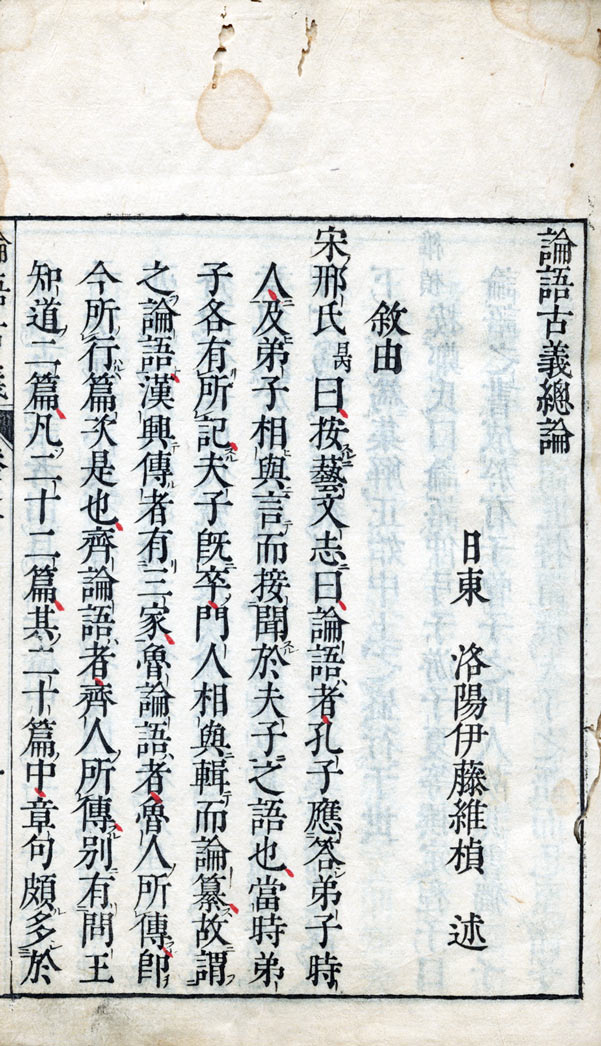 論語古義總論
日東　洛陽伊藤維楨　述
敘由
宋邢氏昺曰按藝文志曰論語者孔子應答弟子時
人及弟子相與言而接聞於夫子之語也當時弟
子各有所記夫子既卒門人相與輯而論纂故謂
之論語漢興傳者有三家魯論語者魯人所傳卽
今所行篇次是也齊論語者齊人所傳別有問王
知道二篇凡二十二篇其二十篇中章句頗多於